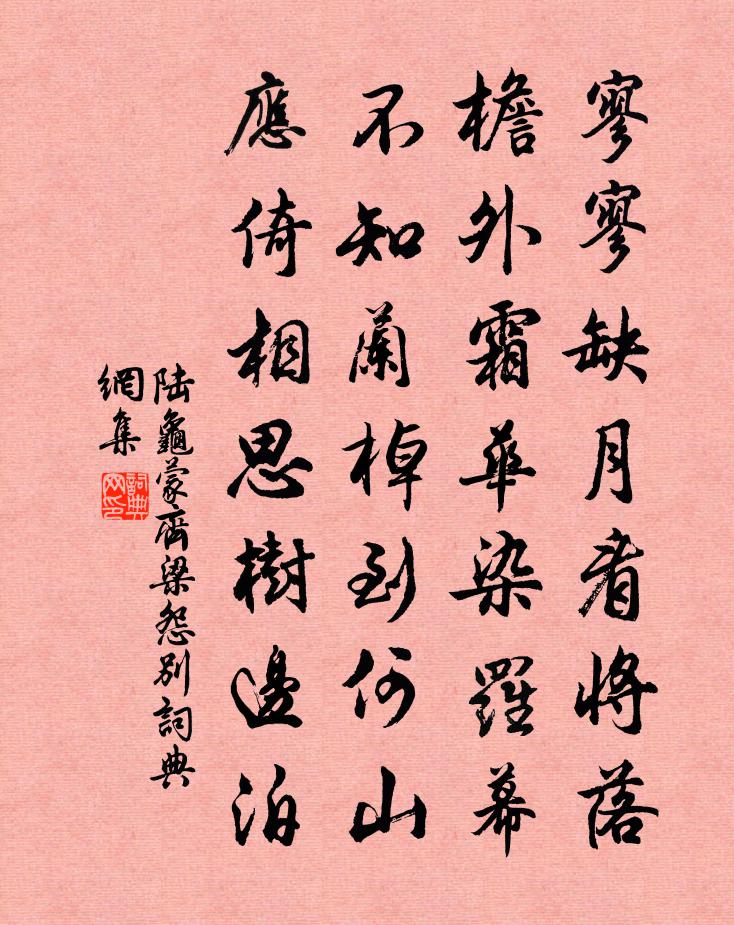 寥寥缺月看將落
檐外霜華染羅幕
不知蘭棹到何山
應倚相思樹邊泊
陆龜蒙齊梁怨別詞典
網集
詞典
网印